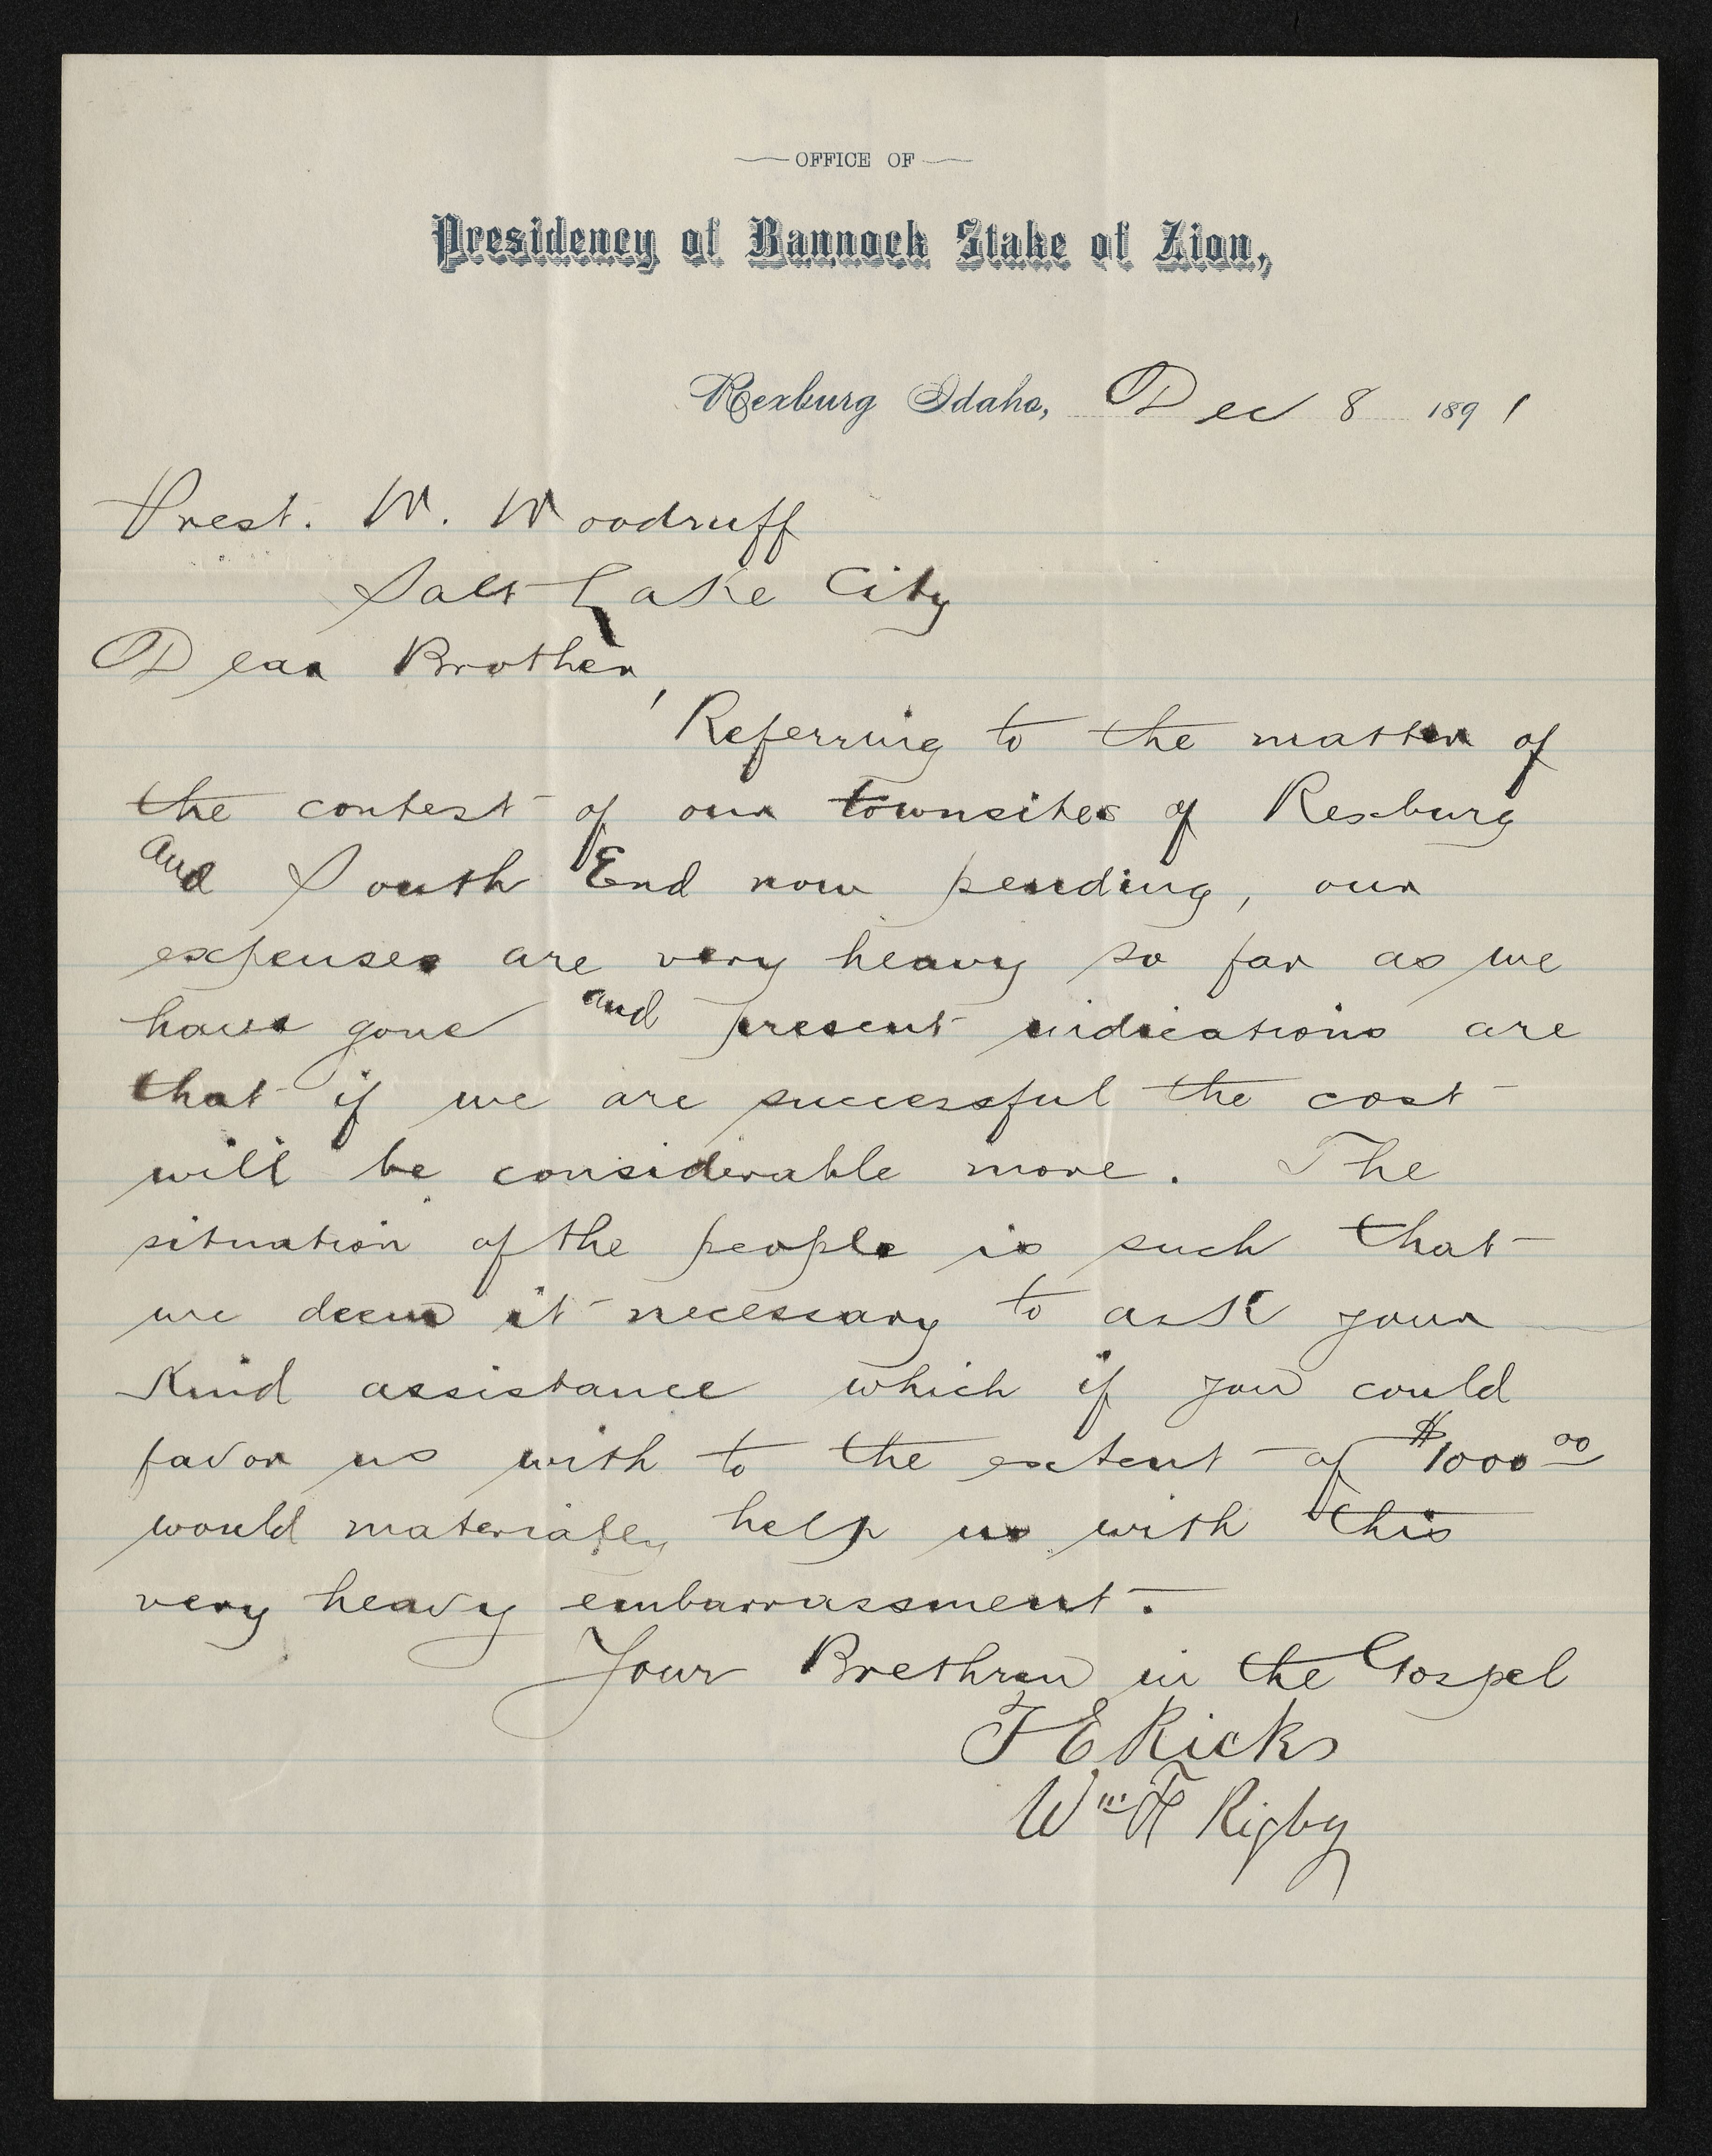 OFFICE OF
Presidency of Bannock Stake of Zion,
Rexburg Idaho, Dec 8 1891
Prest. W. Woodruff
Salt Lake City
Dear Brother,
Referring to the matter of
the contest of our townsites of Rexburg
and South End now pending, our
expenses are very heavy so far as we
have gone and present indications are
that if we are successful the cost
will be considerable more. The
situation of the people is such that
we deem it necessary to ask your
kind assistance which if you could
favor us with to the extent of $1000 00
would materialey help us with this
very heavy embarrassment.
Your Brethren in the Gospel
T E Ricks
Wm F Rigby